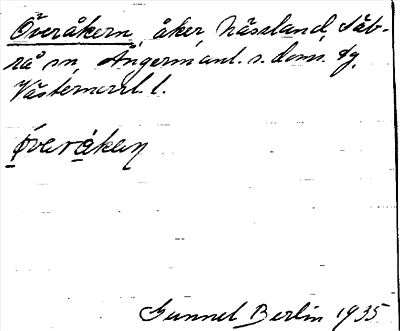 Överåkern, åker, Nässland, Säb-
rå sn, Ångermanl. s. doms. dg,
Västernorrl. l.
øverakeɳ
Gunnel Berlin 1935